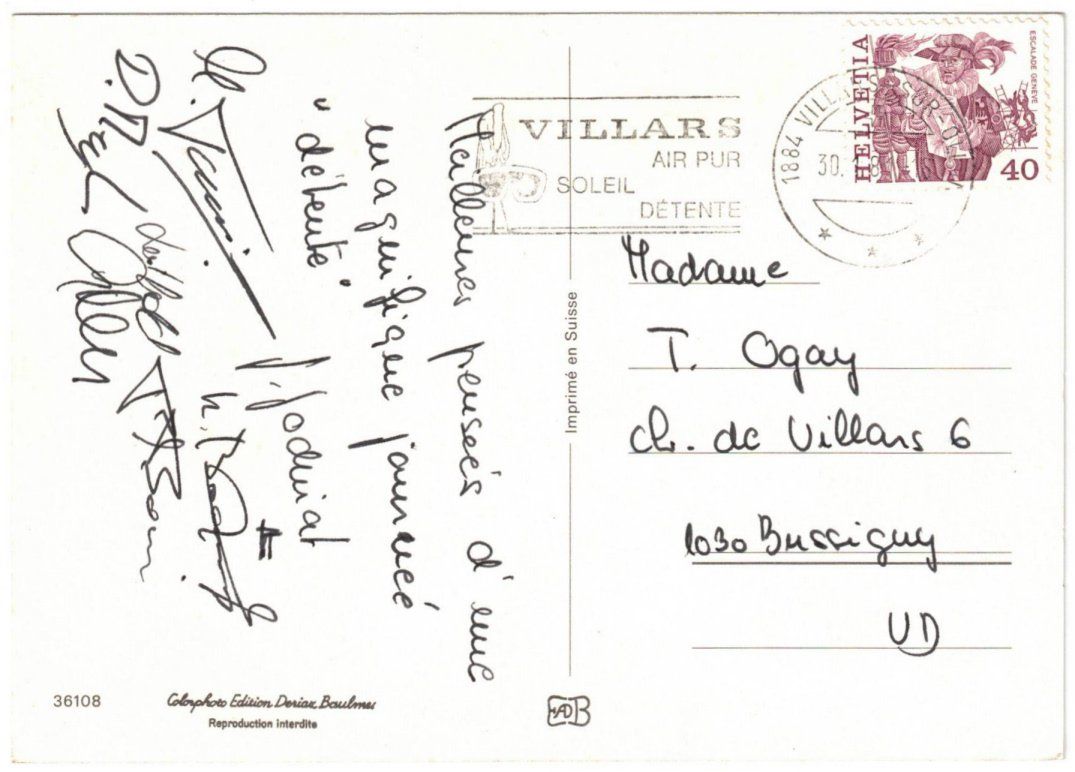 Meilleures pensées d'une
magnifique journée
"détente"
VILLARS
AIR PUR
SOLEIL
DÉTENTE
1884 VILLARS-SUR-OLLON
30.
HELVETIA
ESCALADE GENÈVE
40
Imprimé en Suisse
Madame
T. Ogay
Ch. de Villars 6
1030 Bussigny
VD
36108
Colorphoto Edition Deriaz Baulmes
Reproduction interdite